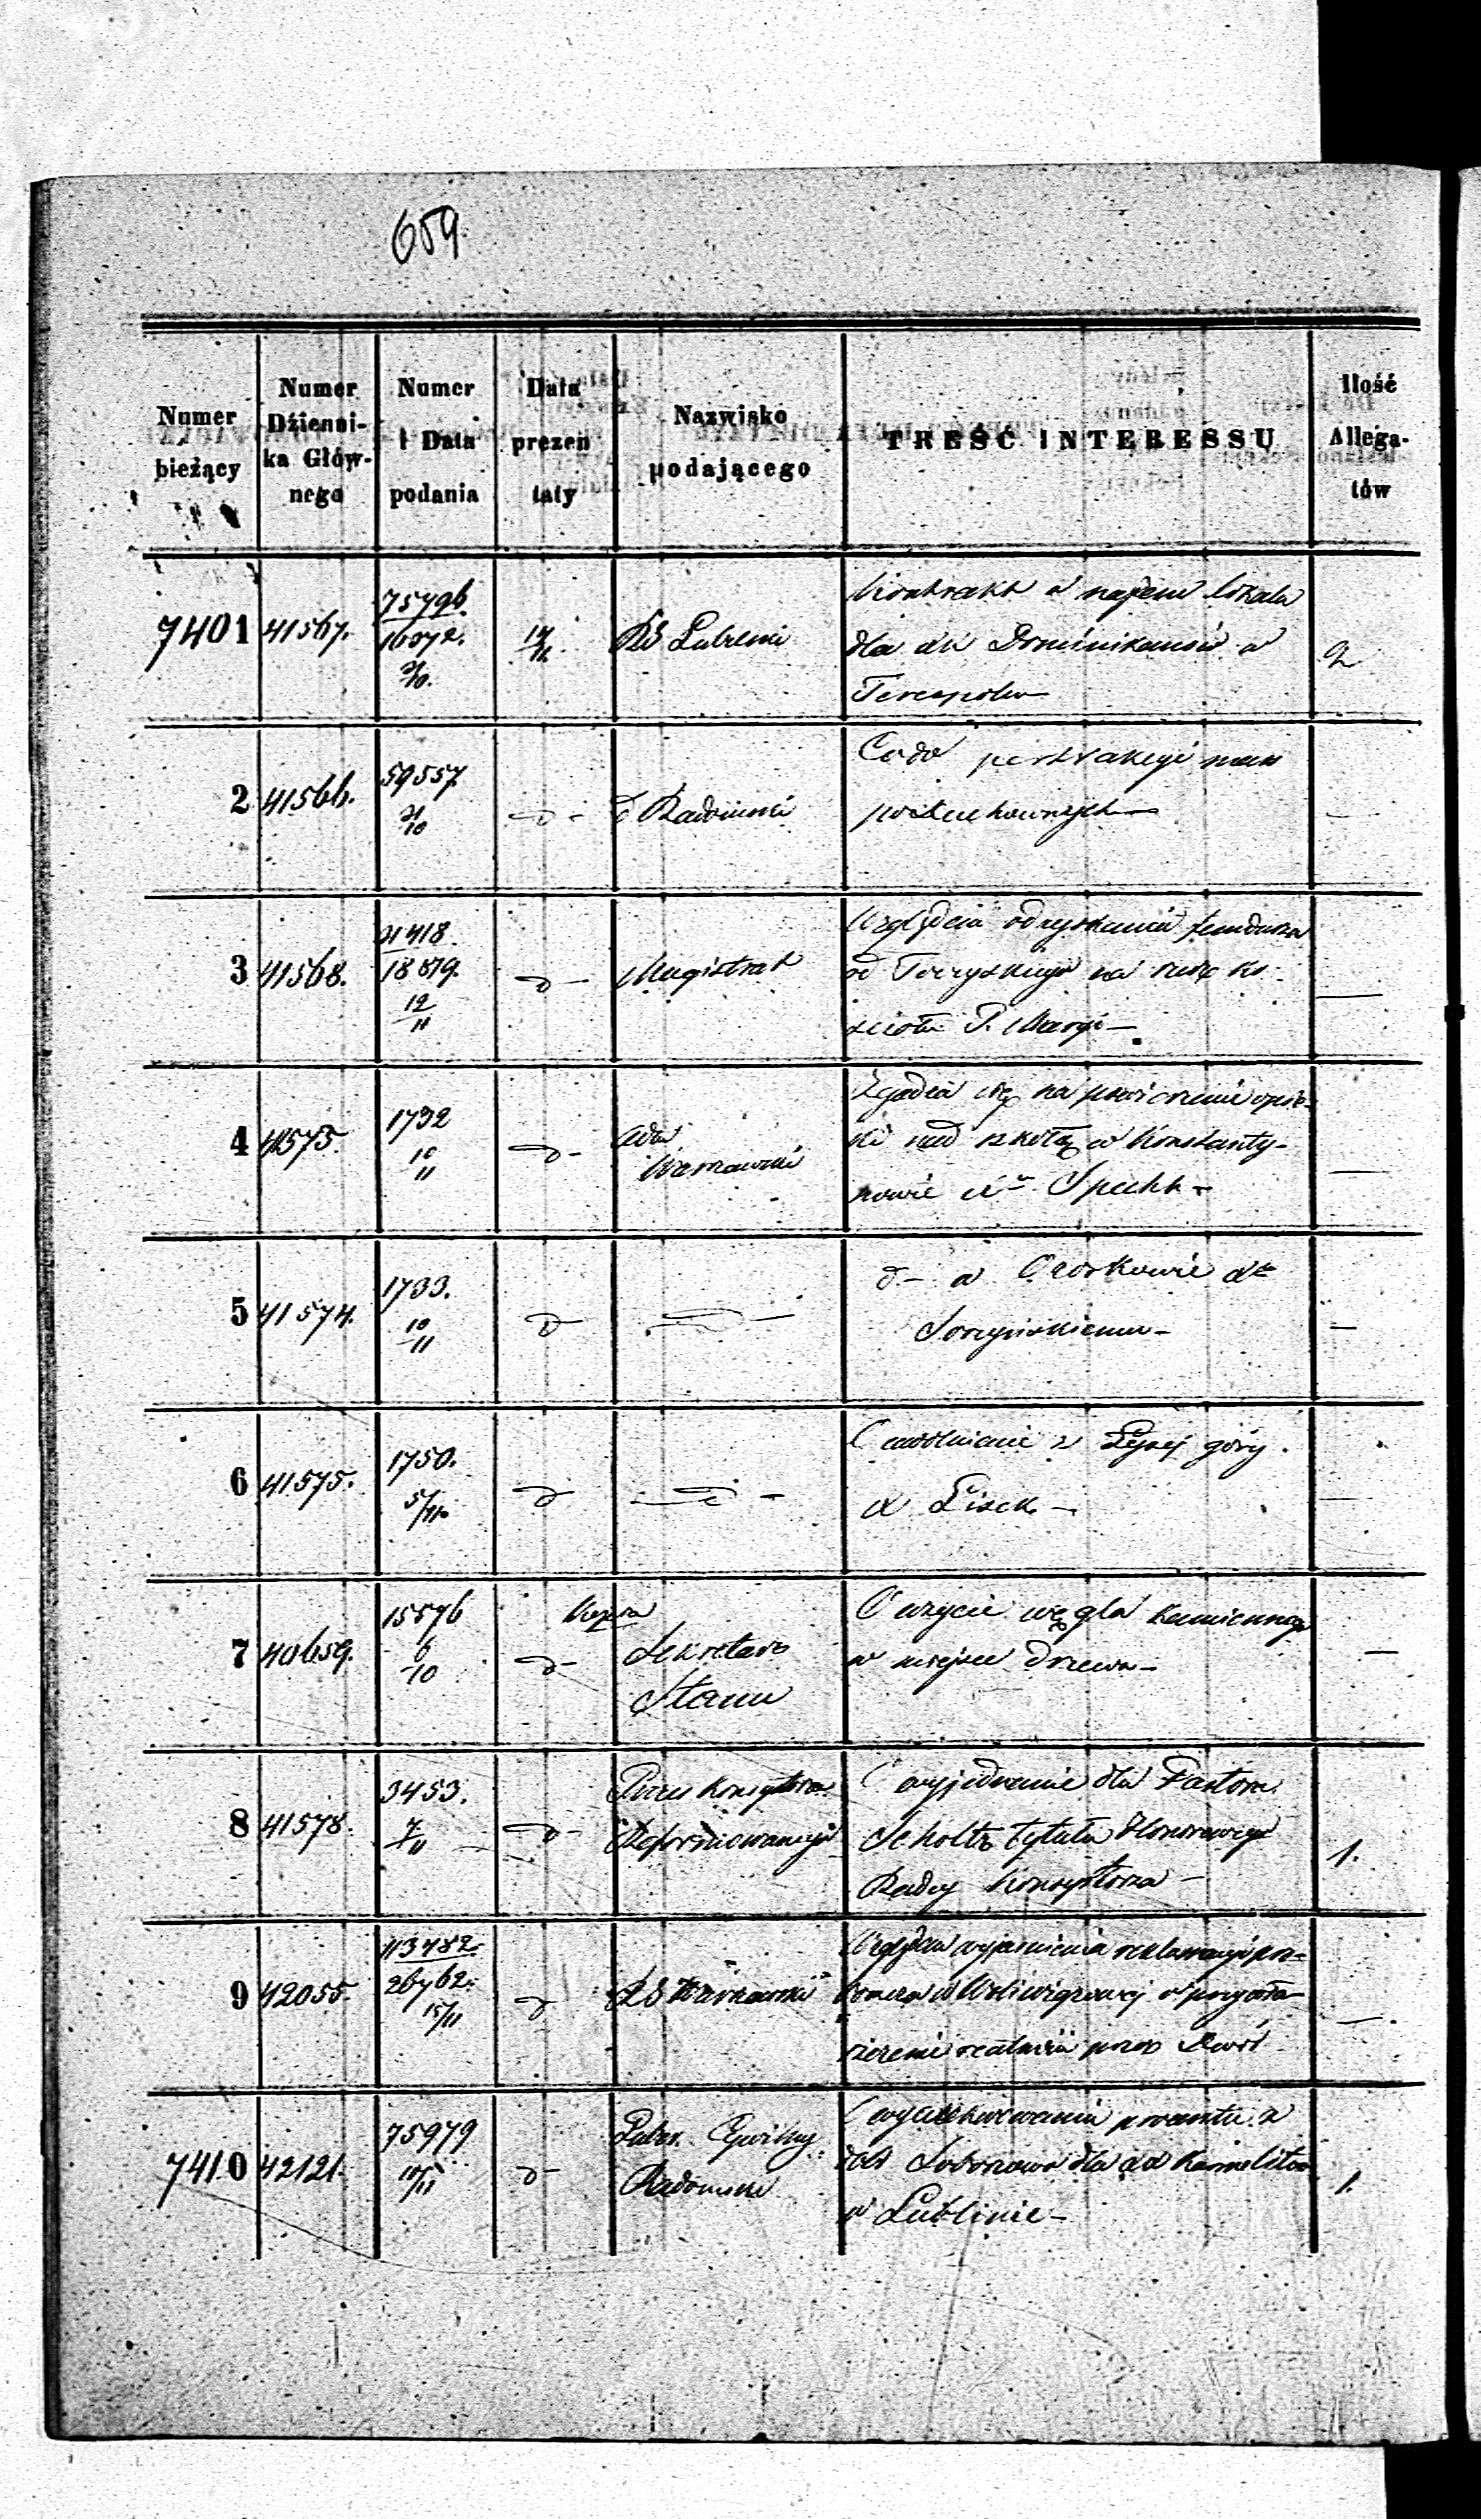 659.
Numer bieżący | Numer Dzienni-ka Głów-nego | Numer i Data podania | Data prezen taty | Nazwisko podającego | TREŚĆ INTERESSU | Ilość Allega-tów
7401 | 41567. | 75796. 16072. 21/10. | 14/11. | RG Lubelski | Kontrakt o najem lokalu
dla XX Dominikanów w | 2
Terespolu
2 | 41566. | 59557. 21/10 | d - | d Radomski | Co do pertrakcyi mass
poduchownych — | —
3 | 41568. | 21418. 18879. 12/11 | d - | Magistrat | Względem odzyskania funduszu
od na rzecz ko- | —
ścioła P. Maryi —
4 | 41573. | 1732 10/11 | d - | Warszawski | Zgadza się na powierzenie opie-
ki nad szkołą w Konstanty- | —
nowie Specht —
5 | 41574. | 1733. 10/11 | d | d — | d - w Ozorkowie
— | —
6 | 41575. | 1750. 5/11. | d | d - | O uwolnienie z Łysej góry
X Lisek — | —
7 | 40659. | 15576 6/10 | d - | Sekretarz Stanu | O użycie węgla kamiennego
w miejsce drzewa — | —
8 | 41578. | 3453. 7/11 | d - | Prezes Konsystorza Reformowanego | O wyjednanie dla Pastora
Scholtz tytułu Honorowego | 1.
Radcy Konsystorza —
9 | 42055. | 113482. 26762. 15/11 | d | RG Warszawski | Względem wyjaśnienia reklamacyi pro-
boszcza w | —
przez Dwór
7410 | 42121. | 75979 14/11 | d - | Guber. Cywilny Radomski | O wyexekwowanie prowentu z
dóbr dla XX Karmelitów | 1.
w Lublinie —